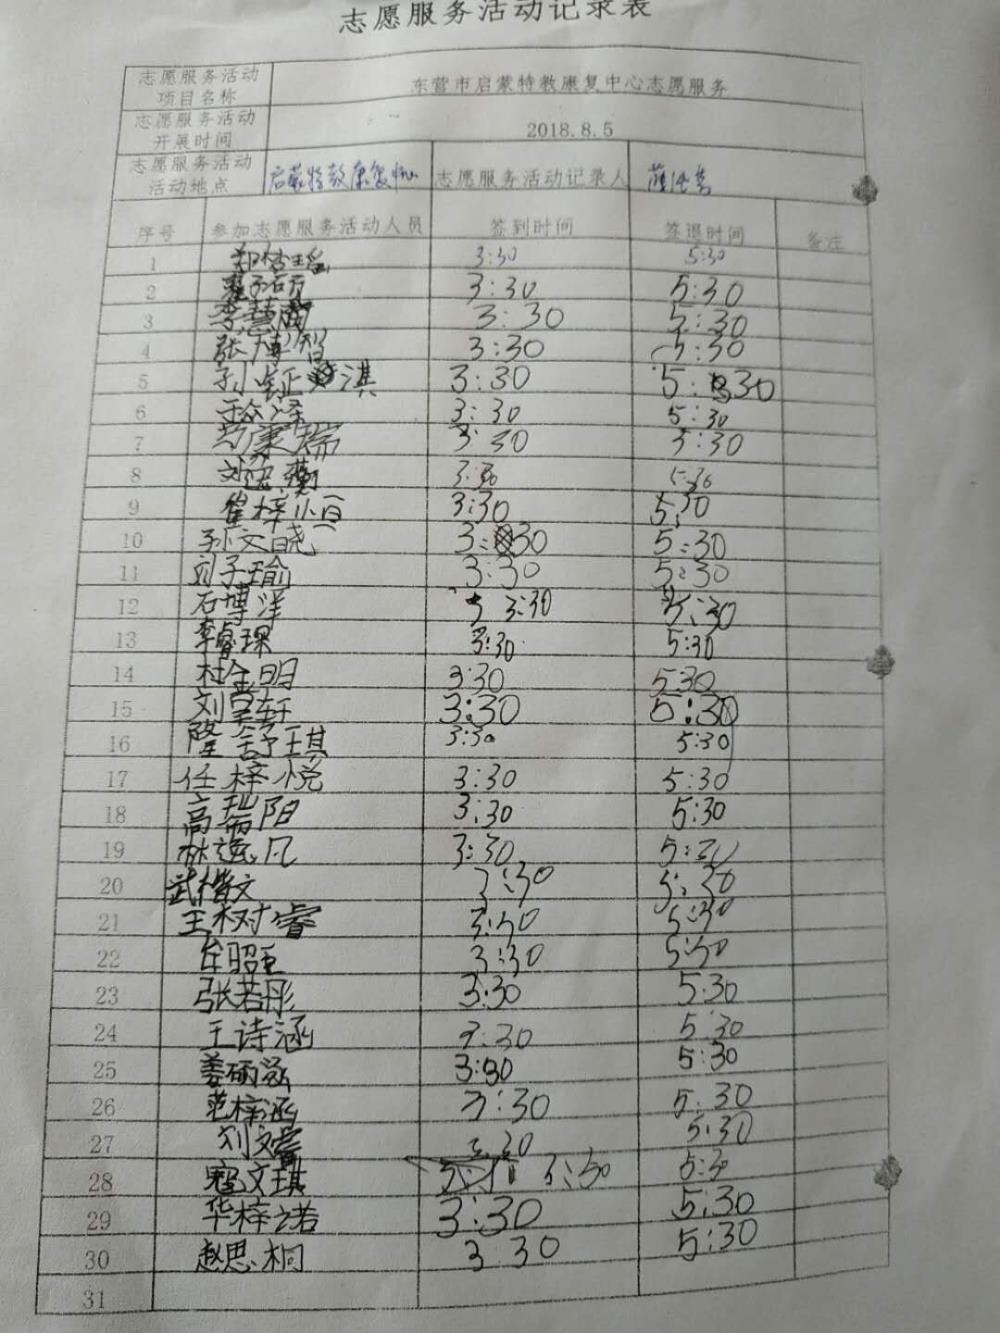 志愿服务活动记录表
志愿服务活动项目名称 东营市启蒙特教康复中心志愿服务
志愿服务活动开展时间 2018.8.5
志愿服务活动活动地点 启蒙特教康复中心 志愿服务活动记录人
序号 参加志愿服务活动人员 签到时间 签退时间 备注
1 3:30 5:30
2 3:30 5:30
3 李慧 3:30 5:30
4 张博智 3:30 5:30
5 淇 3:30 5:30
6 3:30 5:30
7 3:30 5:30
8 3:30 5:30
9 崔梓 3:30 5:30
10 孙文晓 3:30 5:30
11 刘子瑜 3:30 5:30
12 石博洋 3:30 5:30
13 李睿琛 3:30 5:30
14 杜金明 3:30 5:30
15 刘昊轩 3:30 5:30
16 隆舒琪 3:30 5:30
17 任梓悦 3:30 5:30
18 高瑞阳 3:30 5:30
19 林逸凡 3:30 5:30
20 武楷文 3:30 5:30
21 王树睿 3:30 5:30
22 3:30 5:30
23 张若彤 3:30 5:30
24 王诗涵 3:30 5:30
25 姜硕涵 3:30 5:30
26 范梓涵 3:30 5:30
27 刘文睿 3:30 5:30
28 寇文琪 3:30 5:30
29 华梓诺 3:30 5:30
30 赵思桐 3:30 5:30
31